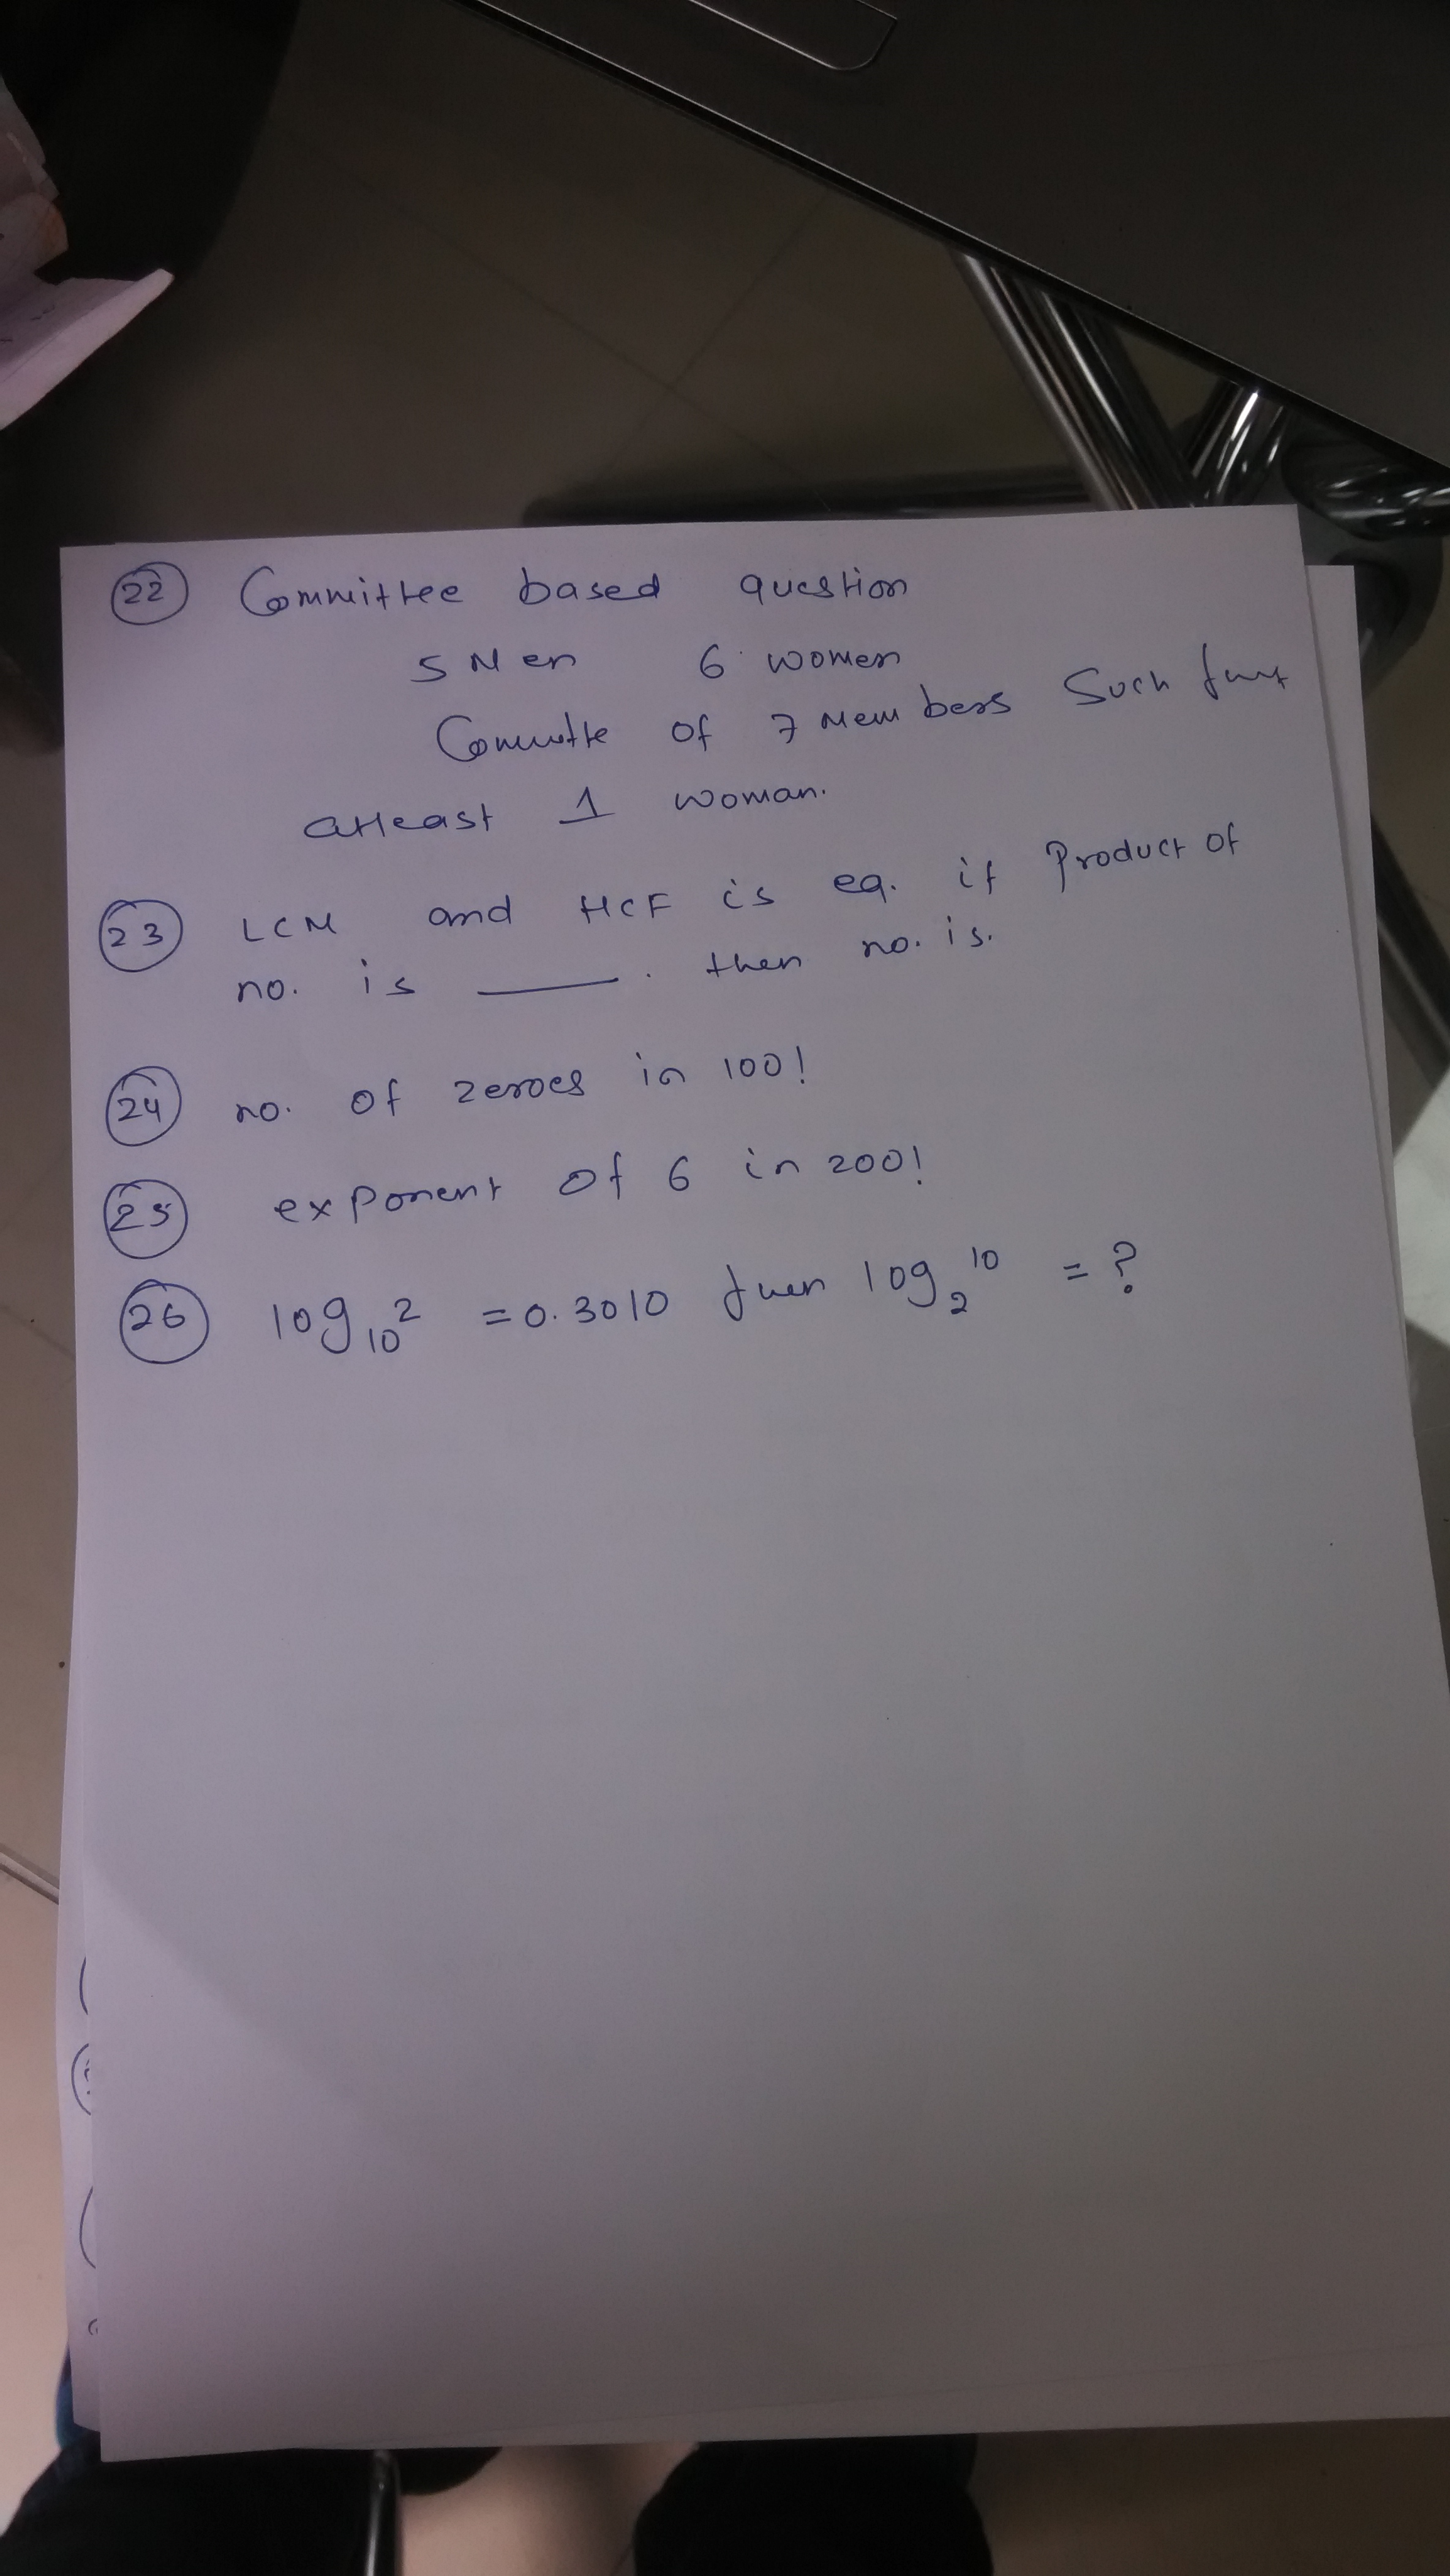 22 Committee based question
5 Men 6 women
Committe of 7 Members Such that
atleast 1 woman.
23 LCM and HCF is eq. if Product of
no. is ____. then no. is.
24 no. of zeroes in 100!
25 exponent of 6 in 200!
26 log₁₀² = 0.3010 then log₂¹⁰ = ?